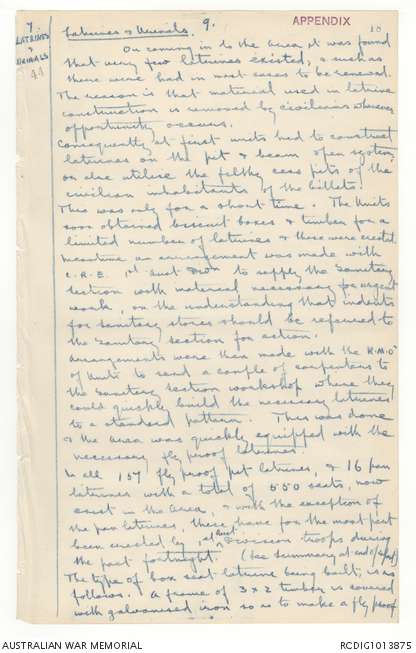 7.
LATRINES
&
URINALS
Latrines & Urinals. 9.
APPENDIX
18
On coming in to the area it was found
that very few latrines existed, & such as
there were had in most cases to be renewed.
The reason is that material used in latrine
construction is removed by civilians whenever
opportunity occurs.
Consequently at first units had to construct
latrines on the pit & beam open system
or else utilise the filthy cess pits of the
civilian inhabitants of the billets.
This was only for a short time. The Units
soon obtained biscuit boxes & timber for a
limited number of latrines & these were erected.
Meantime an arrangement was made with
C.R.E. 1st Aust Divn to supply the Sanitary
Section with material necessary for urgent
work, on the understanding that indents
for sanitary stores should be referred to
the Sanitary Section for action.
Arrangements were then made with the R.M.O's
of Units to send a couple of carpenters to
the Sanitary Section workshop where they
could quickly build the necessary latrines
to a standard pattern. This was done
& the area was quickly equipped with the
necessary fly proof latrines.
In all 157 fly proof pit latrines, & 16 pan
latrines with a total of 550 seats, now
exist in the area, & with the exception of
the pan latrines, these have for the most part
been erected by 1st Aust Division troops during
the past fortnight. (See Summary at end of
The type of box seat latrine being built, is as
follows. A frame of 3 x 2 timber is covered
with galvanised iron so as to make a fly proof
AUSTRALIAN WAR MEMORIAL
RCDIG1013875